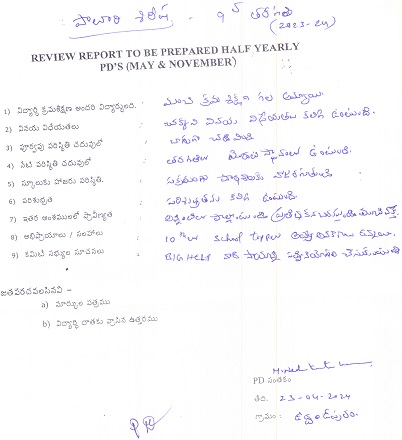 పాచారి శిరీష. 9వ తరగతి
(2023-24)
REVIEW REPORT TO BE PREPARED HALF YEARLY
PD'S (MAY & NOVEMBER)
1) విద్యార్థి క్రమశిక్షణ అందరి విద్యార్థులలో. మంచి క్రమ శిక్షణ గల అమ్మాయి.
2) వినయ విధేయతలు చక్కని వినయ విధేయతలు కలిగి ఉంటుంది.
3) పూర్వపు పరిస్థితి చదువులో బాగుగా చదివేది
4) నేటి పరిస్థితి చదువులో తరగతిలో మొదటి స్థానంలో ఉంటుంది.
5) స్కూలుకు హాజరు పరిస్థితి. సక్రమంగా పాఠశాలకు హాజరగుతుంది.
6) పరిశుభ్రత పరిశుభ్రతను కలిగి ఉంటుంది.
7) ఇతర అంశములలో ప్రావీణ్యత
8) అభిప్రాయాలు / సలహాలు 10th లో School topper అయ్యే అవకాశాలు ఉన్నాయి.
9) కమిటీ సభ్యుల సూచనలు BIG HELP వారి సాయాన్ని సద్వినియోగం చేసుకుంటుంది
జతపరచవలసినవి –
a) మార్కుల పత్రము
b) విద్యార్థి దాతకు వ్రాసిన ఉత్తరము
PD సంతకం
తేది. 23-04-2024
గ్రామం: ఉద్దండపురం.